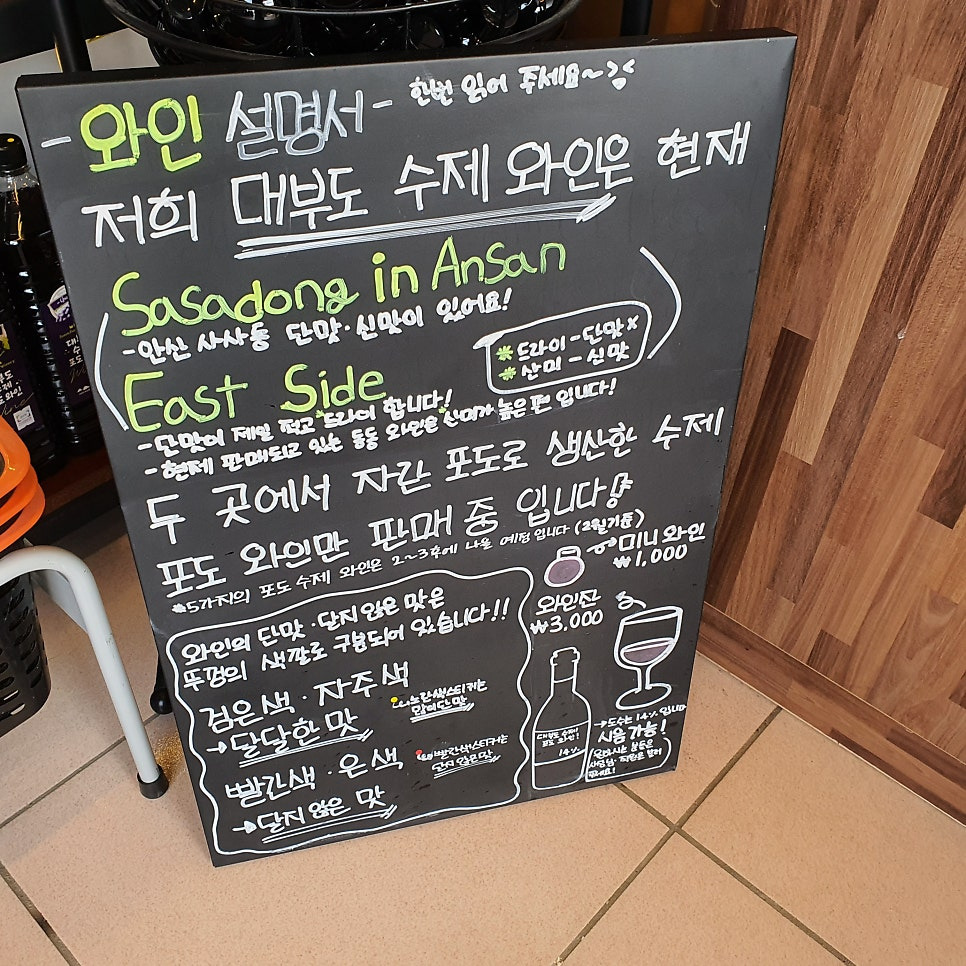 - 와인 설명서 - 한번 읽어 주세요~
저희 대부도 수제 와인은 현재
Sasadong in Ansan
- 안산 사사동 단맛·신맛이 있어요!
* 드라이 - 단맛 x
* 산미 - 신맛
East Side
- 단맛이 제일 적고 드라이 합니다!
- 현제 판매되고 있는 동동 와인은 산미가 높은 편 입니다!
두 곳에서 자란 포도로 생산한 수제
포도 와인만 판매 중 입니다!
*5가지의 포도 수제 와인은 2~3후에 나올 예정입니다 (2월기준)
미니와인
₩1,000
와인잔
₩3,000
와인의 단맛·단지 않은 맛은
뚜껑의 색깔로 구분되어 있습니다!!
검은색·자주색
→ 달달한 맛
노란색스티커는
단맛
빨간색·은색
→ 단지 않은 맛
빨간색스티커는
단지 않은 맛
대부도 수제
포도 와인!
14%
→ 도수는 14% 입니다
시음가능!